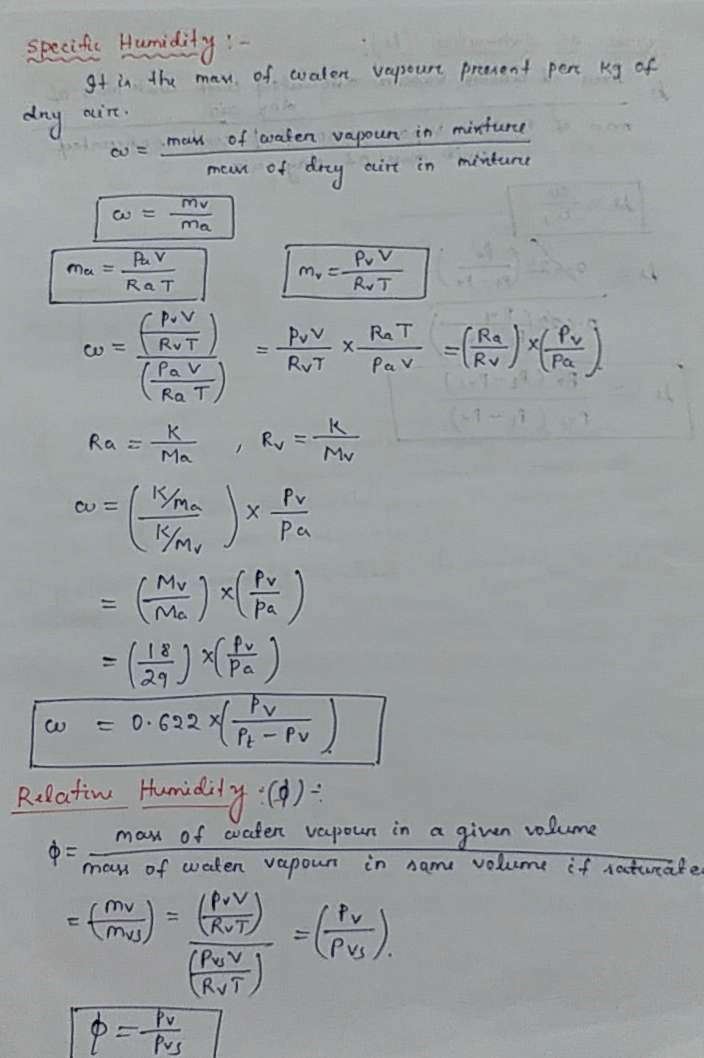 Specific Humidity :-
It is the mass of water vapour present per kg of
dry air.
ω = mass of water vapour in mixture / mass of dry air in mixture
ω = mv / ma
ma = PaV / RaT    mv = PvV / RvT
ω = (PvV / RvT) / (PaV / RaT) = PvV / RvT × RaT / PaV = (Ra / Rv) × (Pv / Pa)
Ra = K / Ma , Rv = K / Mv
ω = ((K/Ma) / (K/Mv)) × Pv / Pa
= (Mv / Ma) × (Pv / Pa)
= (18 / 29) × (Pv / Pa)
ω = 0.622 × (Pv / (Pt - Pv))
Relative Humidity :(ϕ) :-
ϕ = mass of water vapour in a given volume / mass of water vapour in same volume if saturated
= (mv / mvs) = (PvV / RvT) / (PvsV / RvT) = (Pv / Pvs).
ϕ = Pv / Pvs